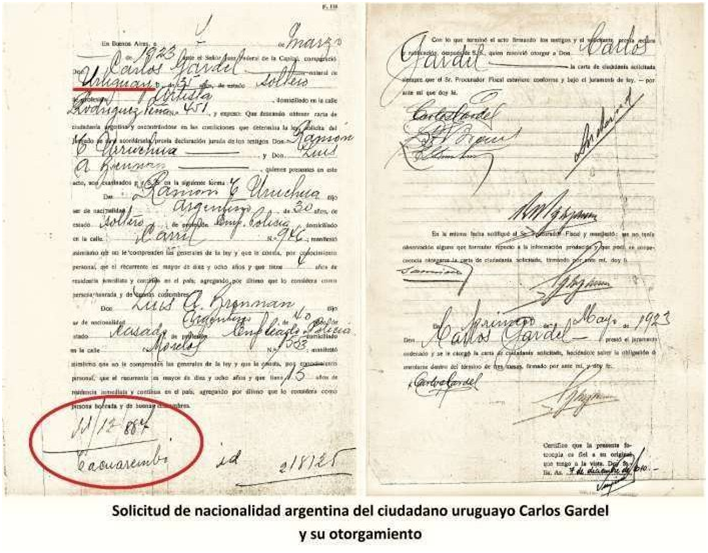 En Buenos Aires, a de marzo
de 1923 ante el Señor Juez Federal de la Capital, compareció
Don Carlos Gardel natural de
Uruguay de 35 años, de estado soltero
de profesión Artista, domiciliado en la calle
Rodríguez Peña Nº 451, y expuso: Que deseando obtener carta de
ciudadanía argentina y encontrándose en las condiciones que determina la ley, solicita del
Juzgado le sea acordada, previa declaración jurada de los testigos Don Ramón
C. Uruchua y Don Luis
A. Brennan quienes presentes en este
acto, son examinados por S.S. en la siguiente forma
Don Ramon C. Uruchua dijo
ser de nacionalidad argentino de 30 años, de
estado soltero de profesión Emp. Policía domiciliado
en la calle Carril Nº 946 manifestó
asimismo que no le comprenden las generales de la ley y que le consta, por conocimiento
personal, que el recurrente es mayor de diez y ocho años y que tiene 4 años de
residencia inmediata y continua en el país, agregando por último que lo considera como
persona honrada y de buenas costumbres.
Don Luis A. Brennan dijo
ser de nacionalidad Argentino de 40 años, de
estado Casado de profesión Empleado Policia
domiciliado en la calle Morelos Nº 553 manifestó
asimismo que no le comprenden las generales de la ley y que le consta, por conocimiento
personal, que el recurrente es mayor de diez y ocho años y que tiene 15 años de
residencia inmediata y continua en el país, agregando por último que lo considera como
persona honrada y de buenas costumbres.
/12/887
Tacuarembó
id 218125
Con lo que terminó el acto firmando los testigos y el solicitante, previa lectura
y ratificación, después de S.S., quien resolvió otorgar a Don Carlos
Gardel la carta de ciudadanía solicitada
siempre que el Sr. Procurador Fiscal estuviere conforme y bajo el juramento de ley, — por
ante mí que doy fé.
Carlos Gardel
En la misma fecha notifiqué al Sr. Procurador Fiscal y manifestó: que no tenía
observación alguna que formular respecto a la información producida y que podía en consecuencia
otorgarse la carta de ciudadanía solicitada, firmando por ante mí, doy fé.
En primero de Mayo de 1923
Don Carlos Gardel prestó el juramento
ordenado y se le otorgó la carta de ciudadanía solicitada, haciéndosele saber la obligación de
enrolarse dentro del término de tres meses, firmando por ante mí, doy fé.
Carlos Gardel
Certifico que la presente fotocopia
es fiel a su original
que tengo a la vista.
Solicitud de nacionalidad argentina del ciudadano uruguayo Carlos Gardel
y su otorgamiento